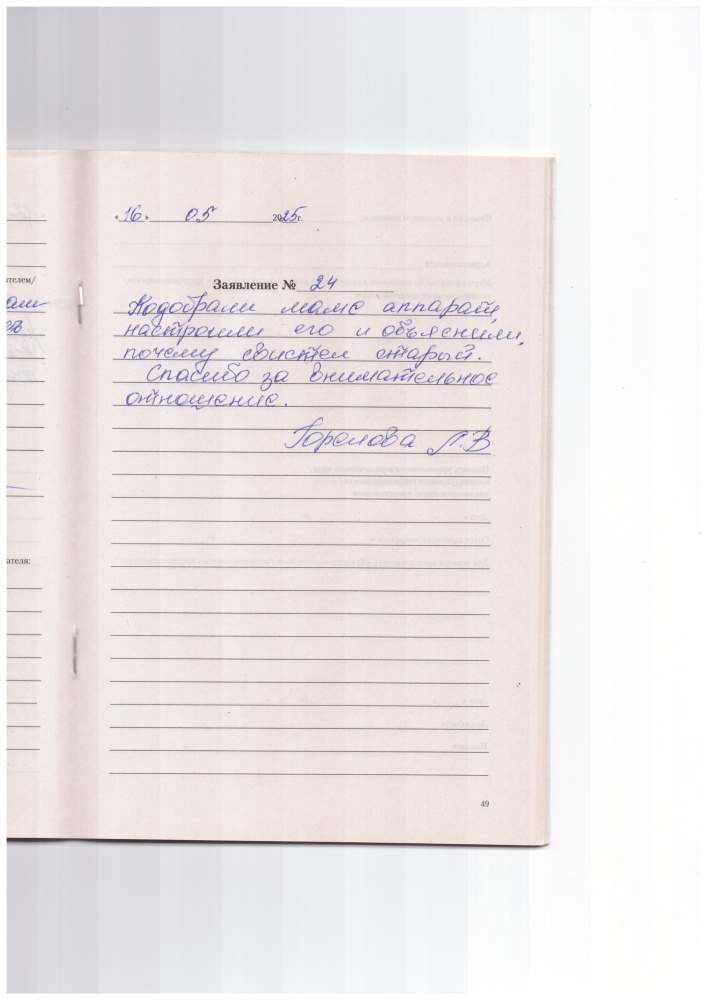 «16» 05 2025г.
ателем/
Заявление № 24
Подобрали маме аппарат,
настроили его и объяснили,
почему свистел старый.
Спасибо за внимательное
отношение.
Горелова Л.В
ателя:
49